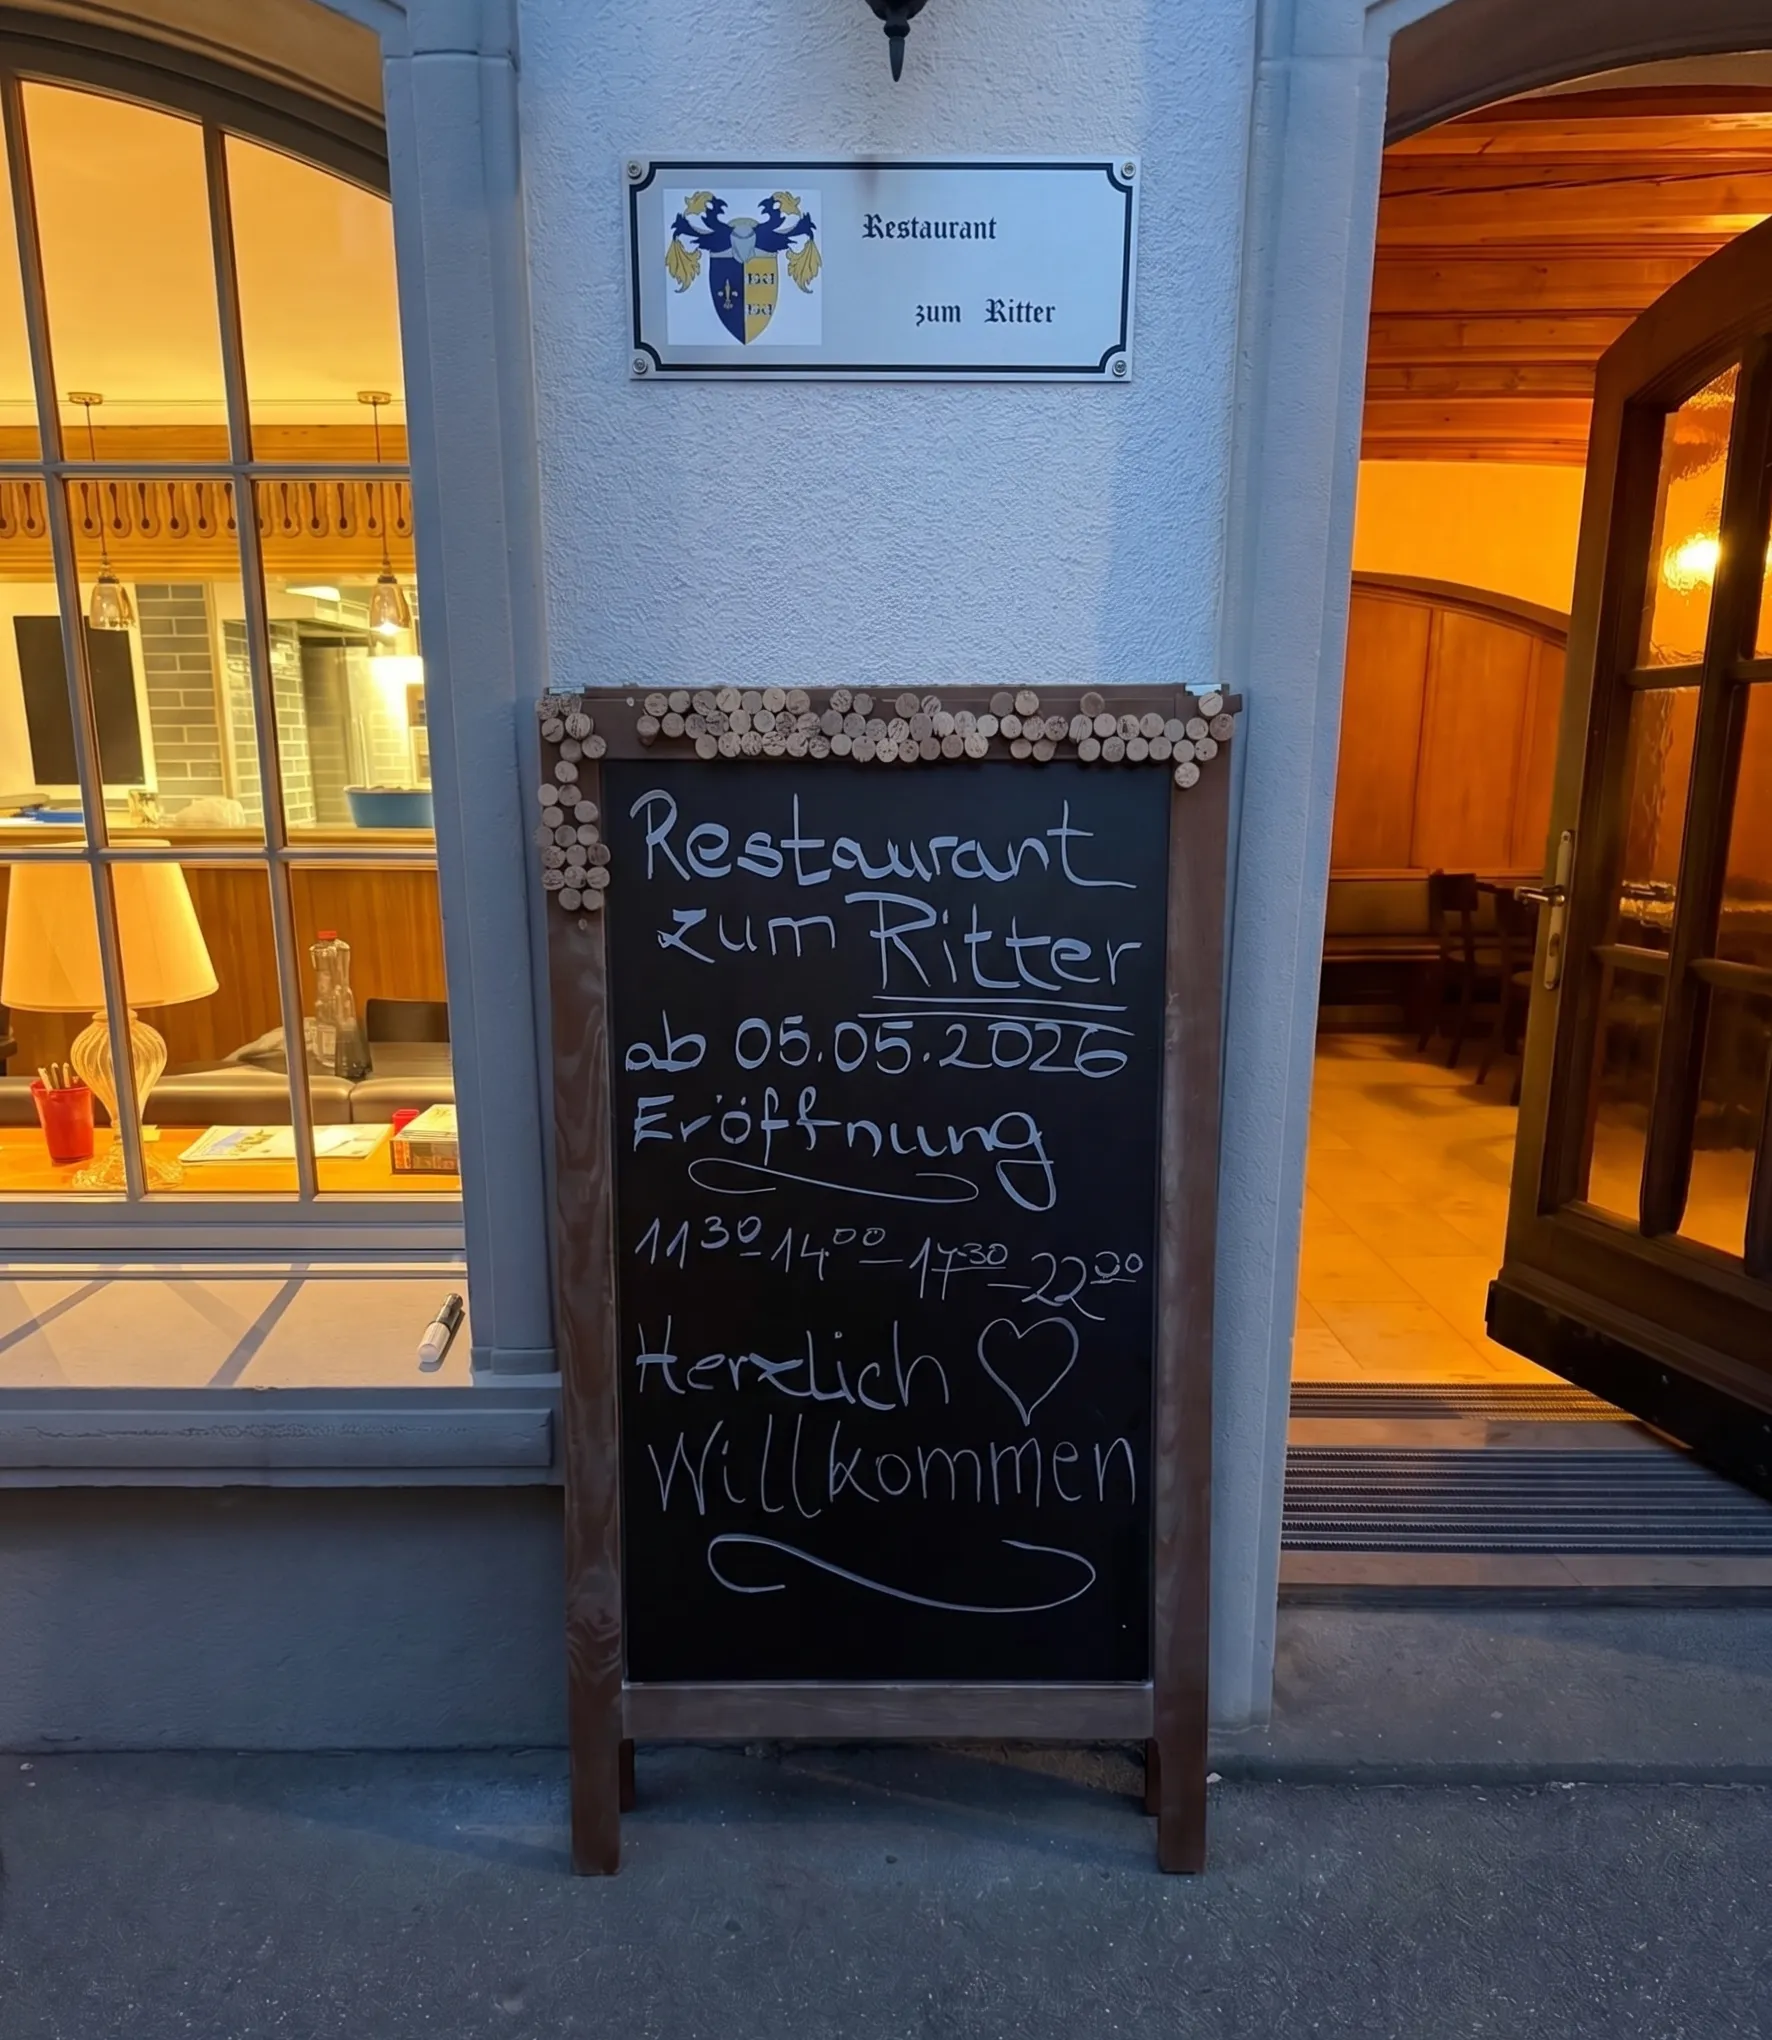 Restaurant
zum Ritter
Restaurant
zum Ritter
ab 05.05.2026
Eröffnung
11³⁰ 14.⁰⁰ – 17³⁰ – 22⁰⁰
Herzlich ♡
Willkommen